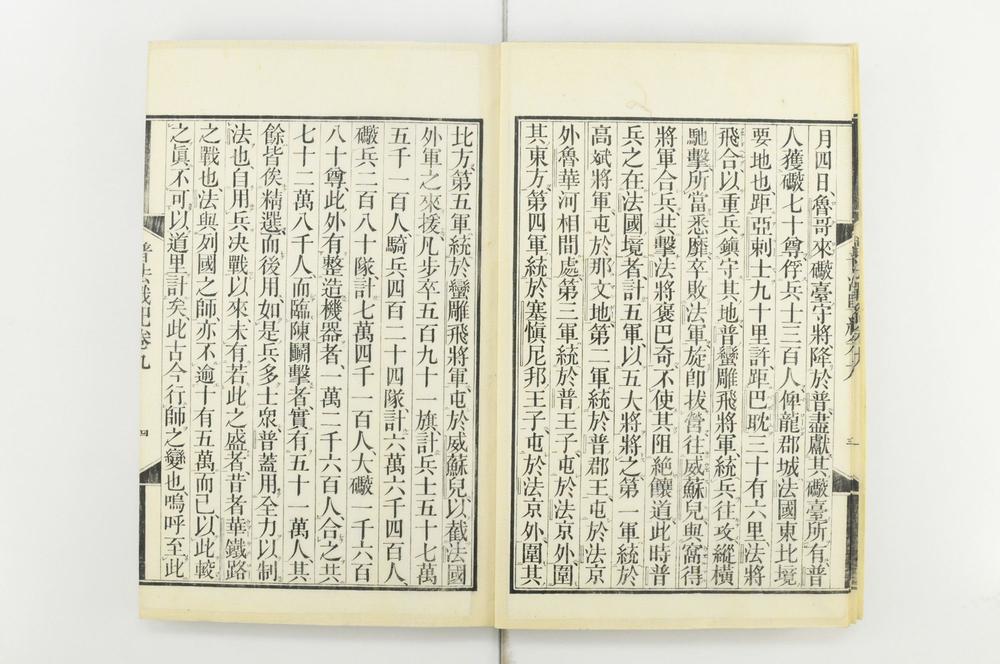 月四日、魯哥來礮臺守將降於普、盡獻其礮臺所有、普
人獲礮七十尊、俘兵士三百人、俾龍郡城法國東北境
要地也、距亞剌士九十里許、距巴耽三十有六里、法將
飛合以重兵鎮守其地、普蠻雕飛將軍、統兵往攻、縱橫
馳擊、所當悉靡、卒敗法軍、旋卽拔營往威蘇兒、與窩得
將軍合兵、共擊法將褒巴奇、不使其阻絶饟道、此時普
兵之在法國境者、計五軍、以五大將將之、第一軍統於
高斌將軍、屯於那文地、第二軍統於普郡王、屯於法京
外魯華河相間處、第三軍統於普王子、屯於法京外圍
其東方、第四軍統於塞愼尼邦王子、屯於法京外圍其
北方、第五軍統於蠻雕飛將軍、屯於威蘇兒、以截法國
外軍之來援、凡步卒五百九十一旗、計兵士五十七萬
五千一百人、騎兵四百二十四隊、計六萬六千四百人、
礮兵二百八十隊、計七萬四千一百人、大礮一千六百
八十尊、此外有整造機器者、一萬二千六百人、合之共
七十二萬八千人、而臨陳鬭擊者、實有五十一萬人、其
餘皆俟精選、而後用、如是兵多士眾、普蓋用全力以制
法也、自用兵決戰以來、未有若此之盛者、昔者華鐵路
之戰也、法與列國之師、亦不逾十有五萬、而已以此較
之、眞不可以道里計矣、此古今行師之變也、嗚呼至此
普法戰紀卷九
三
四